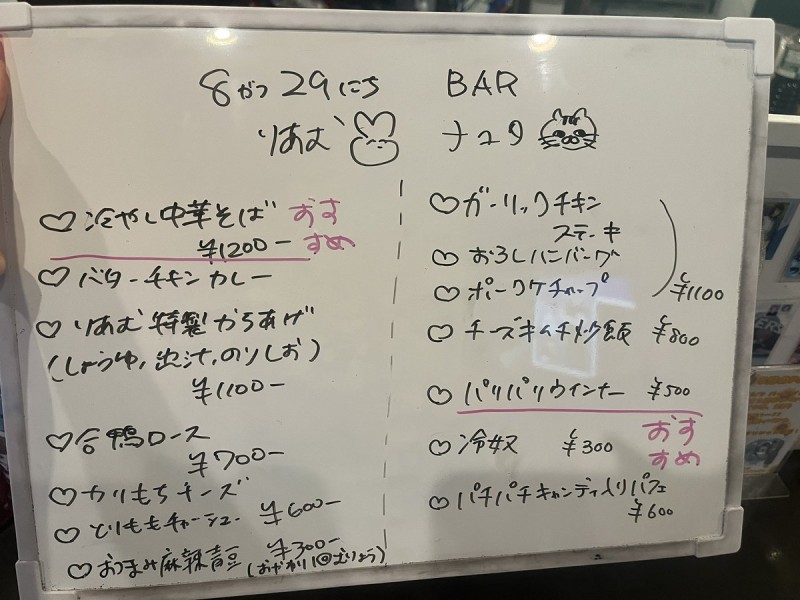 8がつ29にち
りあむ
♡冷やし中華そば おす
¥1200− すめ
♡バターチキンカレー
♡りあむ特製からあげ
(しょうゆ,出汁,のりしお)
¥1100−
♡合鴨ロース
¥700−
♡カリもちチーズ
♡とりももチャーシュー ¥600−
¥300−
♡おつまみ麻辣青豆 (おかわり1@むりょう)
BAR
ナユタ
♡ガーリックチキン
ステーキ
♡おろしハンバーグ
♡ポークケチャップ ¥1100
♡チーズキムチ炒飯 ¥800
♡パリパリウインナー ¥500
♡冷奴 ¥300 おす
すめ
♡パチパチキャンディ入りパフェ
¥600